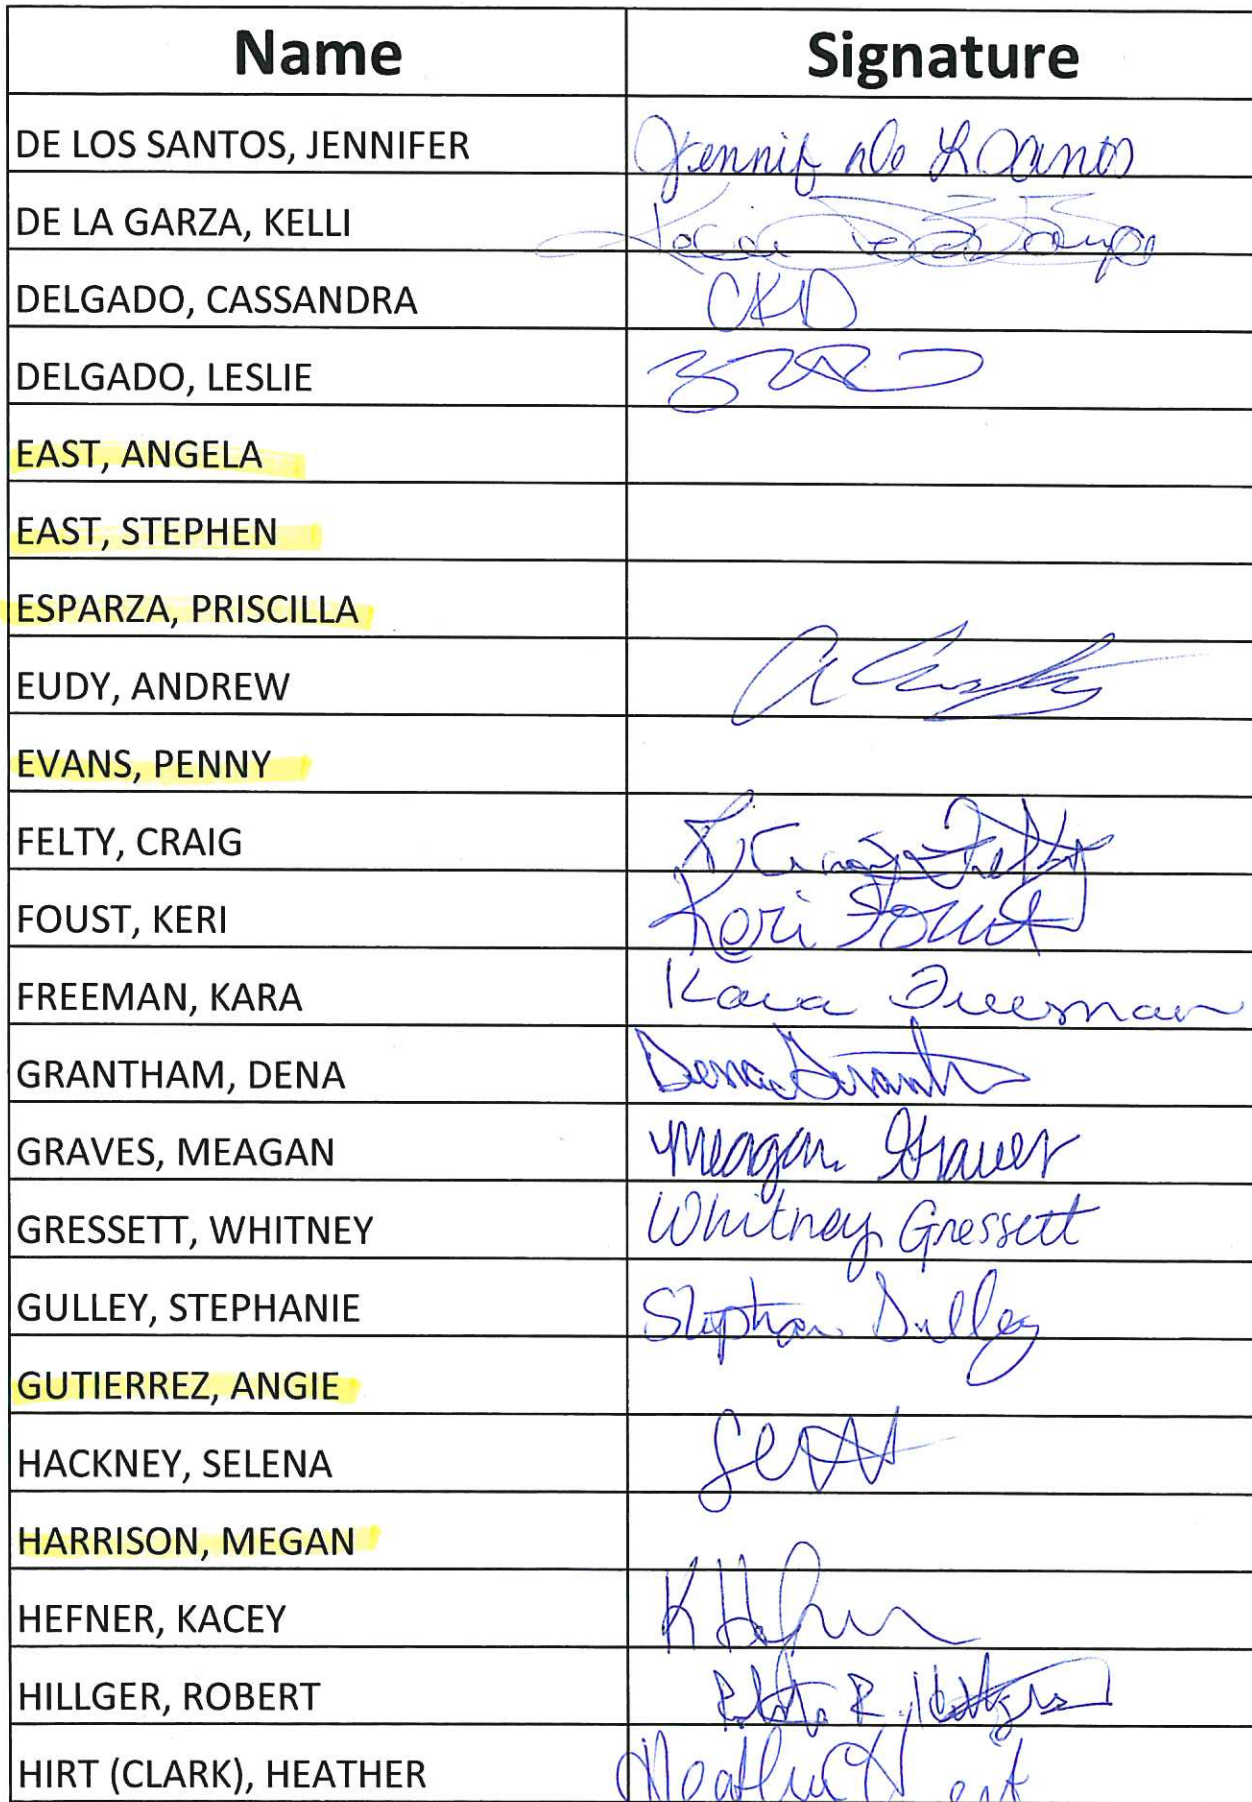 Name Signature
DE LOS SANTOS, JENNIFER Jennif de L Santos
DE LA GARZA, KELLI
DELGADO, CASSANDRA CKD
DELGADO, LESLIE
EAST, ANGELA
EAST, STEPHEN
ESPARZA, PRISCILLA
EUDY, ANDREW
EVANS, PENNY
FELTY, CRAIG Craig Felty
FOUST, KERI Keri Foust
FREEMAN, KARA Kara Freeman
GRANTHAM, DENA Dena
GRAVES, MEAGAN Meagan Graves
GRESSETT, WHITNEY Whitney Gressett
GULLEY, STEPHANIE Gulley
GUTIERREZ, ANGIE
HACKNEY, SELENA
HARRISON, MEGAN
HEFNER, KACEY K
HILLGER, ROBERT R.
HIRT (CLARK), HEATHER Heather